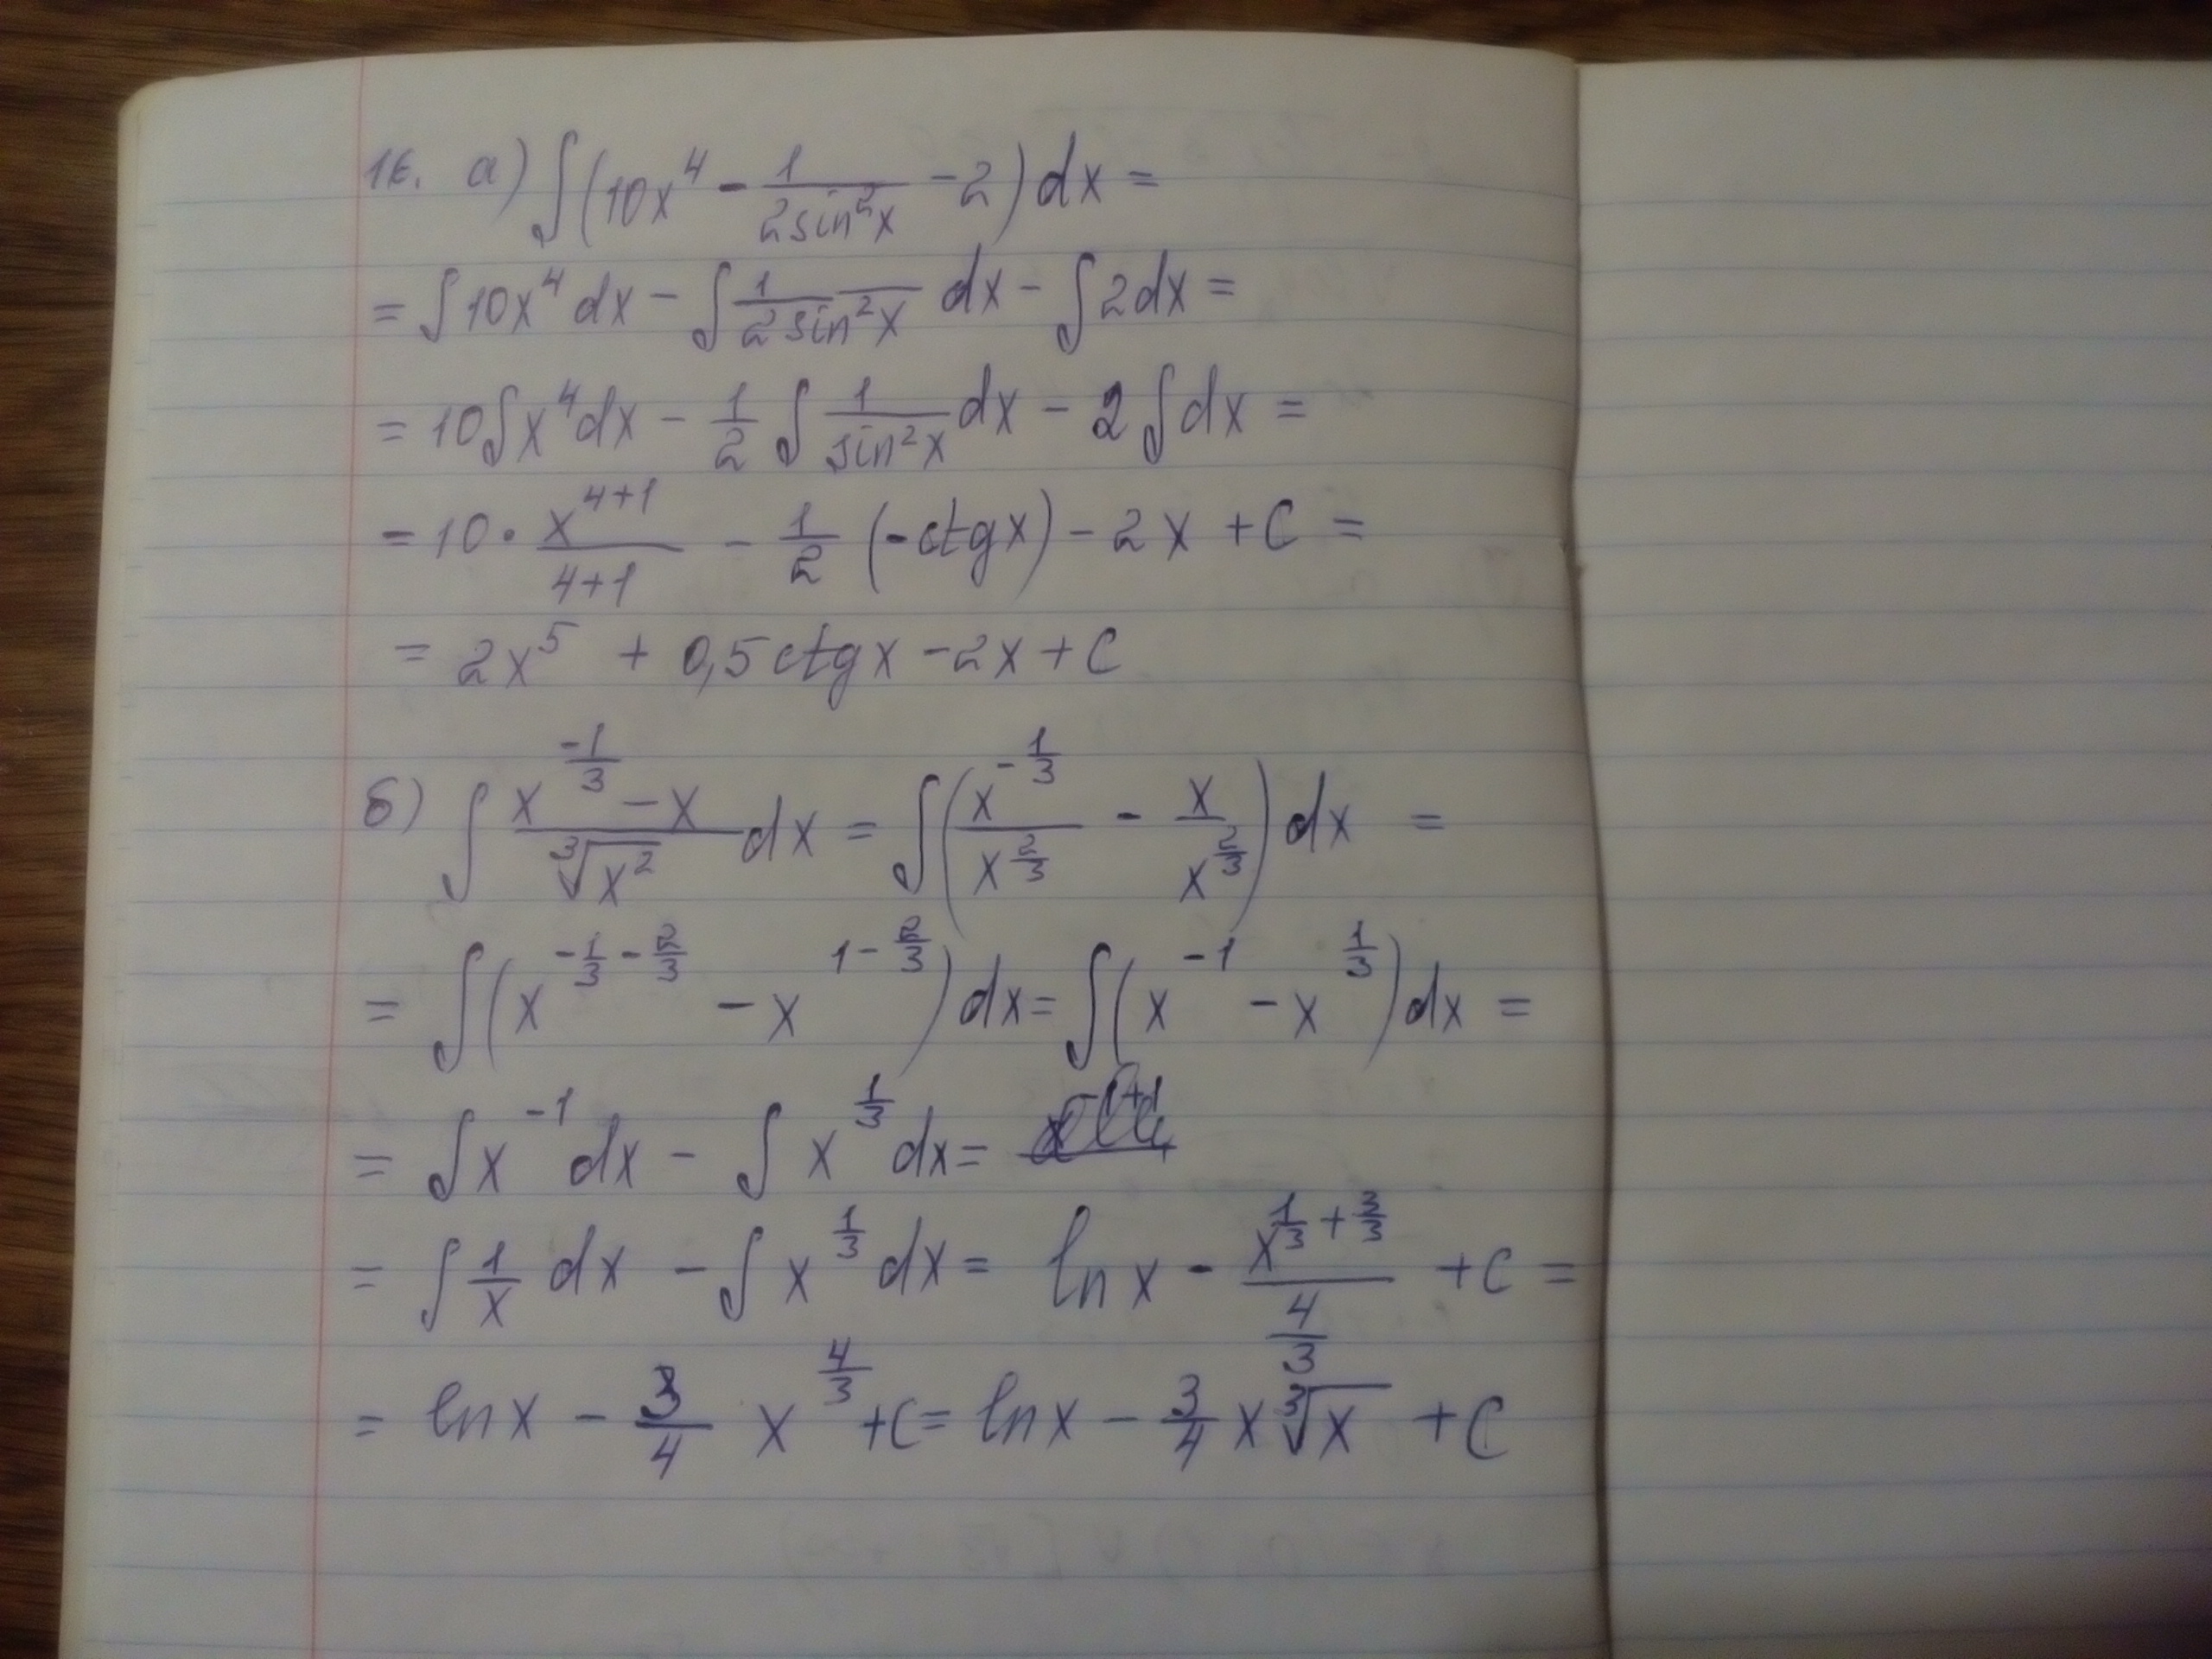 16. а) ∫(10x⁴ - 1/(2sin²x) - 2)dx =
= ∫10x⁴ dx - ∫1/(2sin²x) dx - ∫2dx =
= 10∫x⁴dx - 1/2 ∫ 1/(sin²x) dx - 2∫dx =
= 10 · x^(4+1)/(4+1) - 1/2 (-ctgx) - 2x + C =
= 2x⁵ + 0,5ctgx - 2x + C
б) ∫ (x^(-1/3) - x)/∛(x²) dx = ∫(x^(-1/3)/x^(2/3) - x/x^(2/3))dx =
= ∫(x^(-1/3 - 2/3) - x^(1 - 2/3))dx = ∫(x^(-1) - x^(1/3))dx =
= ∫x^(-1)dx - ∫x^(1/3)dx =
= ∫1/x dx - ∫x^(1/3)dx = ln x - x^(1/3 + 3/3)/(4/3) + C =
= ln x - 3/4 x^(4/3) + C = ln x - 3/4 x∛x + C